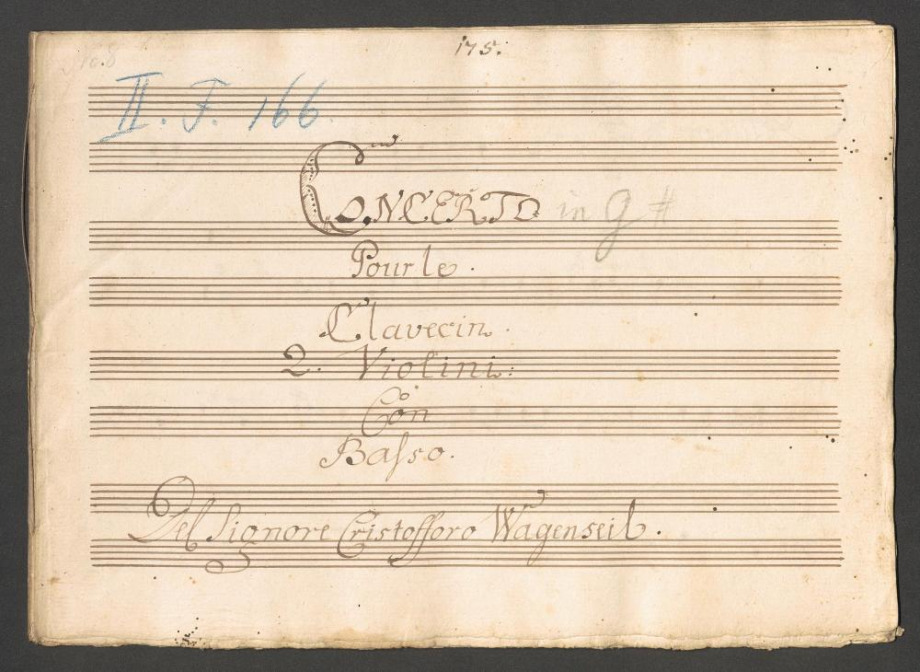 175:
No. 8
II. F. 166
CONCERTO in g #
Pour le.
Clavecin.
2. Violini:
Con
Baſso.
Del Signore Cristofforo Wagenseil.